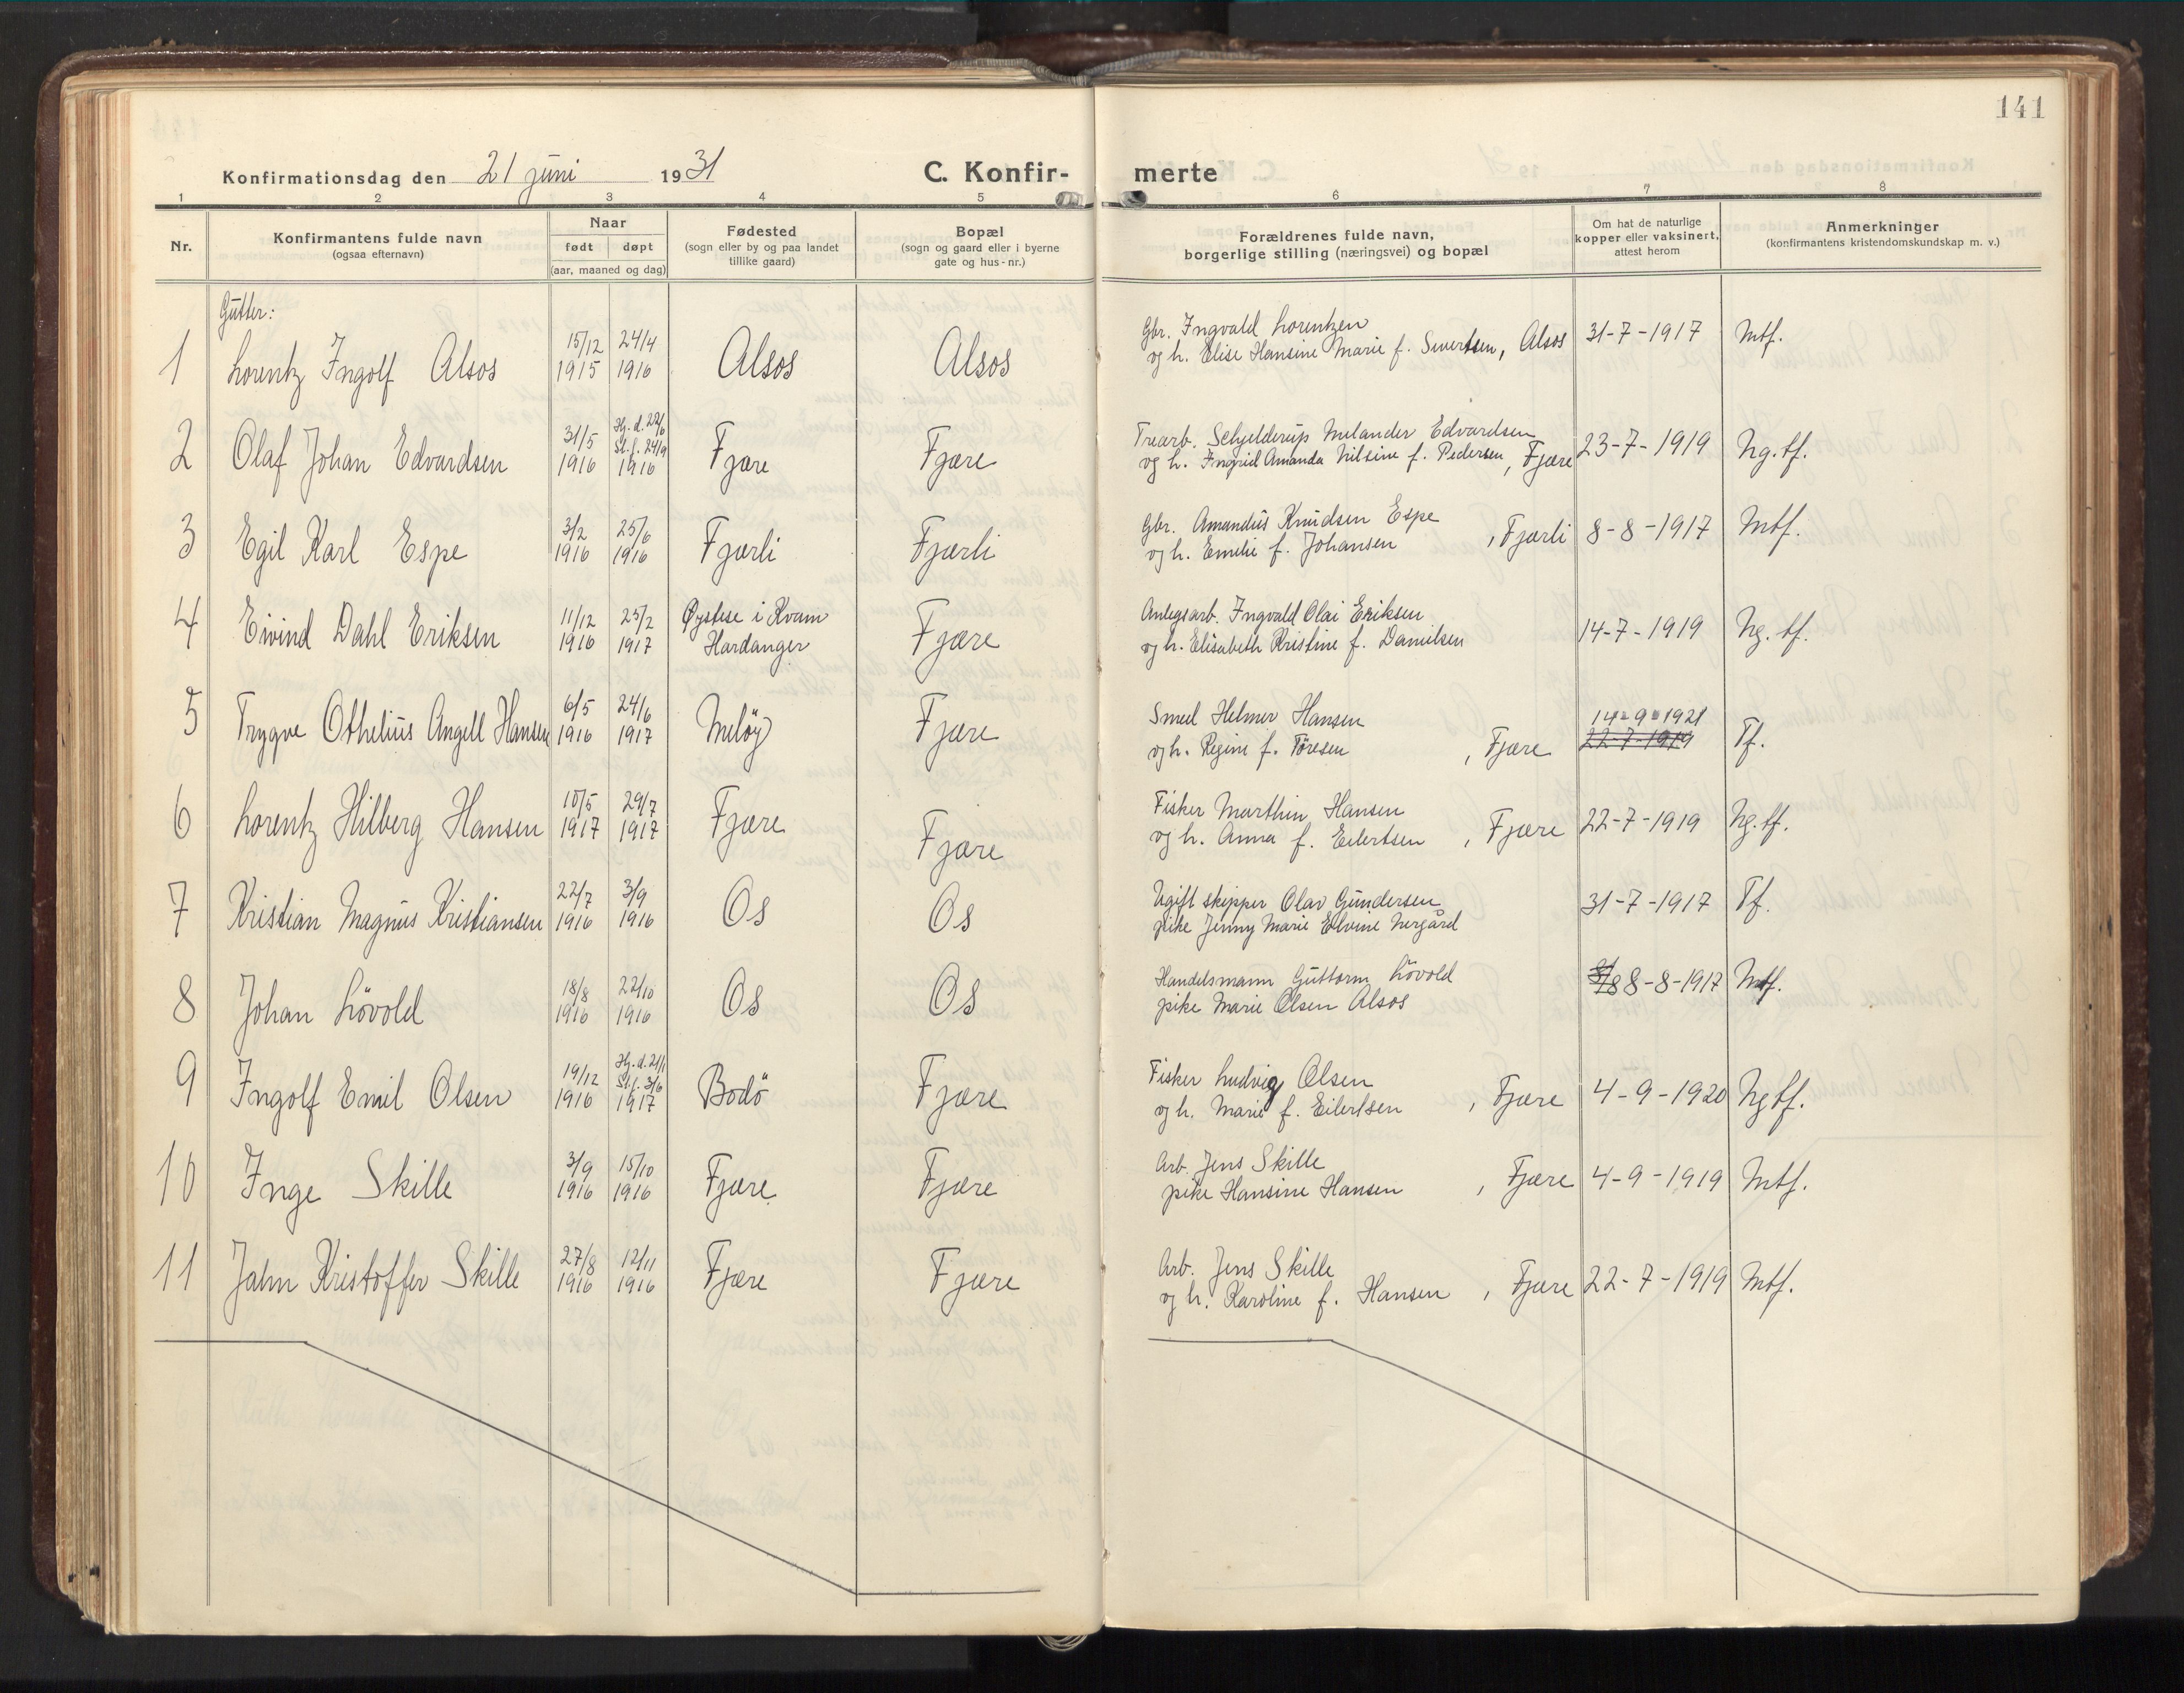 141
Konfirmationsdag den 21 juni 1931 C. Konfir- merte
1 2 3 4 5 6 7 8
Nr.
Konfirmantens fulde navn
(ogsaa efternavn)
Naar
født døpt
(aar, maaned og dag)
Fødested
(sogn eller by og paa landet
tillike gaard)
Bopæl
(sogn og gaard eller i byerne
gate og hus-nr.)
Forældrenes fulde navn,
borgerlige stilling (næringsvei) og bopæl
Om hat de naturlige
kopper eller vaksinert,
attest herom
Anmerkninger
(konfirmantens kristendomskundskap m. v.)
Gutter:
1 Lorentz Ingolf Alsos 15/12 1915 24/4 1916 Alsos Alsos
Gbr. Ingvald Lorentzen
og h. Elise Hansine Marie f. Sivertsen, Alsos 31-7-1917 Mtf.
2 Olaf Johan Edvardsen 31/5 1916 Hj. d. 22/6 St. f. 24/9 1916 Fjære Fjære
Trearb. Schjelderup Melander Edvardsen
og h. Ingrid Amanda Nilsine f. Pedersen, Fjære 23-7-1919 Ng. tf.
3 Egil Karl Espe 3/2 1916 25/6 1916 Fjærli Fjærli
Gbr. Amandus Knudsen Espe
og h. Emelie f. Johansen, Fjærli 8-8-1917 Mtf.
4 Eivind Dahl Eriksen 11/12 1916 25/2 1917 Øystese i Kvam Hardanger Fjære
Anlegsarb. Ingvald Olai Eriksen
og h. Elisabeth Kristine f. Danielsen 14-7-1919 Ng. tf.
5 Trygve Othelius Angell Hansen 6/5 1916 24/6 1917 Meløy Fjære
Smed Helmer Hansen 14-9-1921
og h. Regine f. Tøresen, Fjære 22-7-1919 Tf.
6 Lorentz Hilberg Hansen 10/5 1917 29/7 1917 Fjære Fjære
Fisker Marthin Hansen
og h. Anna f. Eilertsen, Fjære 22-7-1919 Ng. tf.
7 Kristian Magnus Kristiansen 22/7 1916 3/9 1916 Os Os
Ugift skipper Olav Gundersen
pike Jenny Marie Elvine Nergård 31-7-1917 Tf.
8 Johan Løvold 18/8 1916 22/10 1916 Os Os
Handelsmann Guttorm Løvold
pike Marie Olsen Alsos 8-8-1917 Mtf.
9 Ingolf Emil Olsen 19/12 1916 Hj. d. 21/1 St. f. 3/6 1917 Bodö Fjære
Fisker Ludvig Olsen
og h. Marie f. Eilertsen, Fjære 4-9-1920 Ng tf.
10 Inge Skille 3/9 1916 15/10 1916 Fjære Fjære
Arb. Jens Skille
pike Hansine Hansen, Fjære 4-9-1919 Mtf.
11 Jahn Kristoffer Skille 27/8 1916 12/11 1916 Fjære Fjære
Arb. Jens Skille
og h. Karoline f. Hansen, Fjære 22-7-1919 Mtf.